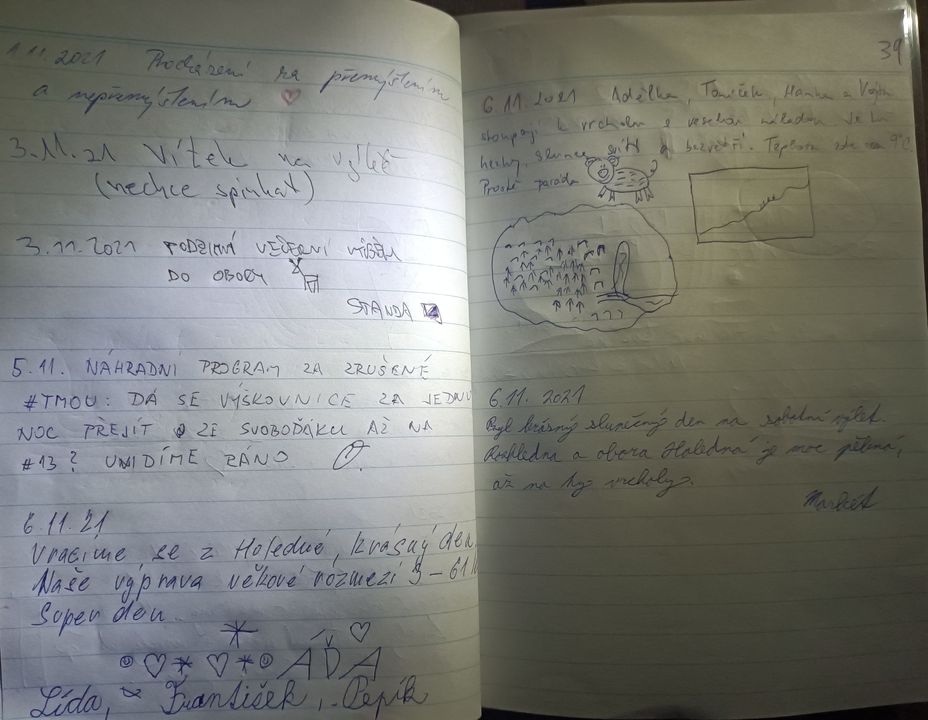 1.11.2021 Procházení za přemýšlením
a nepřemýšlením
3.11.21 Vítek na výletě
(nechce spinkat)
3.11.2021 PODZIMNÍ VEČERNÍ VÝBĚH
DO OBORY
STANDA
5.11. NÁHRADNÍ PROGRAM ZA ZRUŠENÉ
#TMOU: DÁ SE VÝŠKOVNICE ZA JEDNU
NOC PŘEJÍT ZE SVOBODÁKU AŽ NA
#13? UVIDÍME RÁNO
6.11.21
Vracíme se z Holedné, krásný den
Naše výprava věkové rozmezí 3-61
Super den
ÁĎA
Lída, František, Pepík
39
6.11.2021 Adélka, Toníček, Hanka a Vojta
stoupají k vrcholu s veselou náladou. Je
hezky, slunce svítí a bezvětří. Teplota 9°C
Prostě paráda
6.11.2021
Byl krásný slunečný den na sobotní výlet.
Rozhledna a obora Holedná je moc pěkná,
až na ty vrcholy.